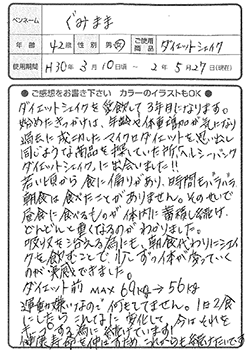 ペンネーム ぐみまま
年齢 42歳 性別 男・女 ご使用商品 ダイエットシェイク
使用期間 H30年3月10日~ 2年5月27日(現在)
●ご感想をお書き下さい カラーのイラストもOK●
ダイエットシェイクを愛飲して3年目になります。
始めたきっかけは、年齢や体重増加が気になり
過去に成功したマイクロダイエットを思い出し
同じような商品を探していた所、ヘルシーバンク
ダイエットシェイクに出会いました!!
若い頃から食に偏りがあり、時間もバラバラ
朝食は食べたことがありません。そのせいで
昼食に食べるものが体内に蓄積し続け
どんどんと重くなるのがわかりました。
吸収を抑える為にも、朝食代わりにシェイ
クを飲むことで、少しずつ体が変っていく
のが実感できました。
ダイエット前 MAX 69kg→56kg
運動が嫌いなので何もしてません。1日2食
にしたらこんなに変化して、今はそれを
キープする為に続けています!
健康寿命を伸ばすため これからも続けたいです